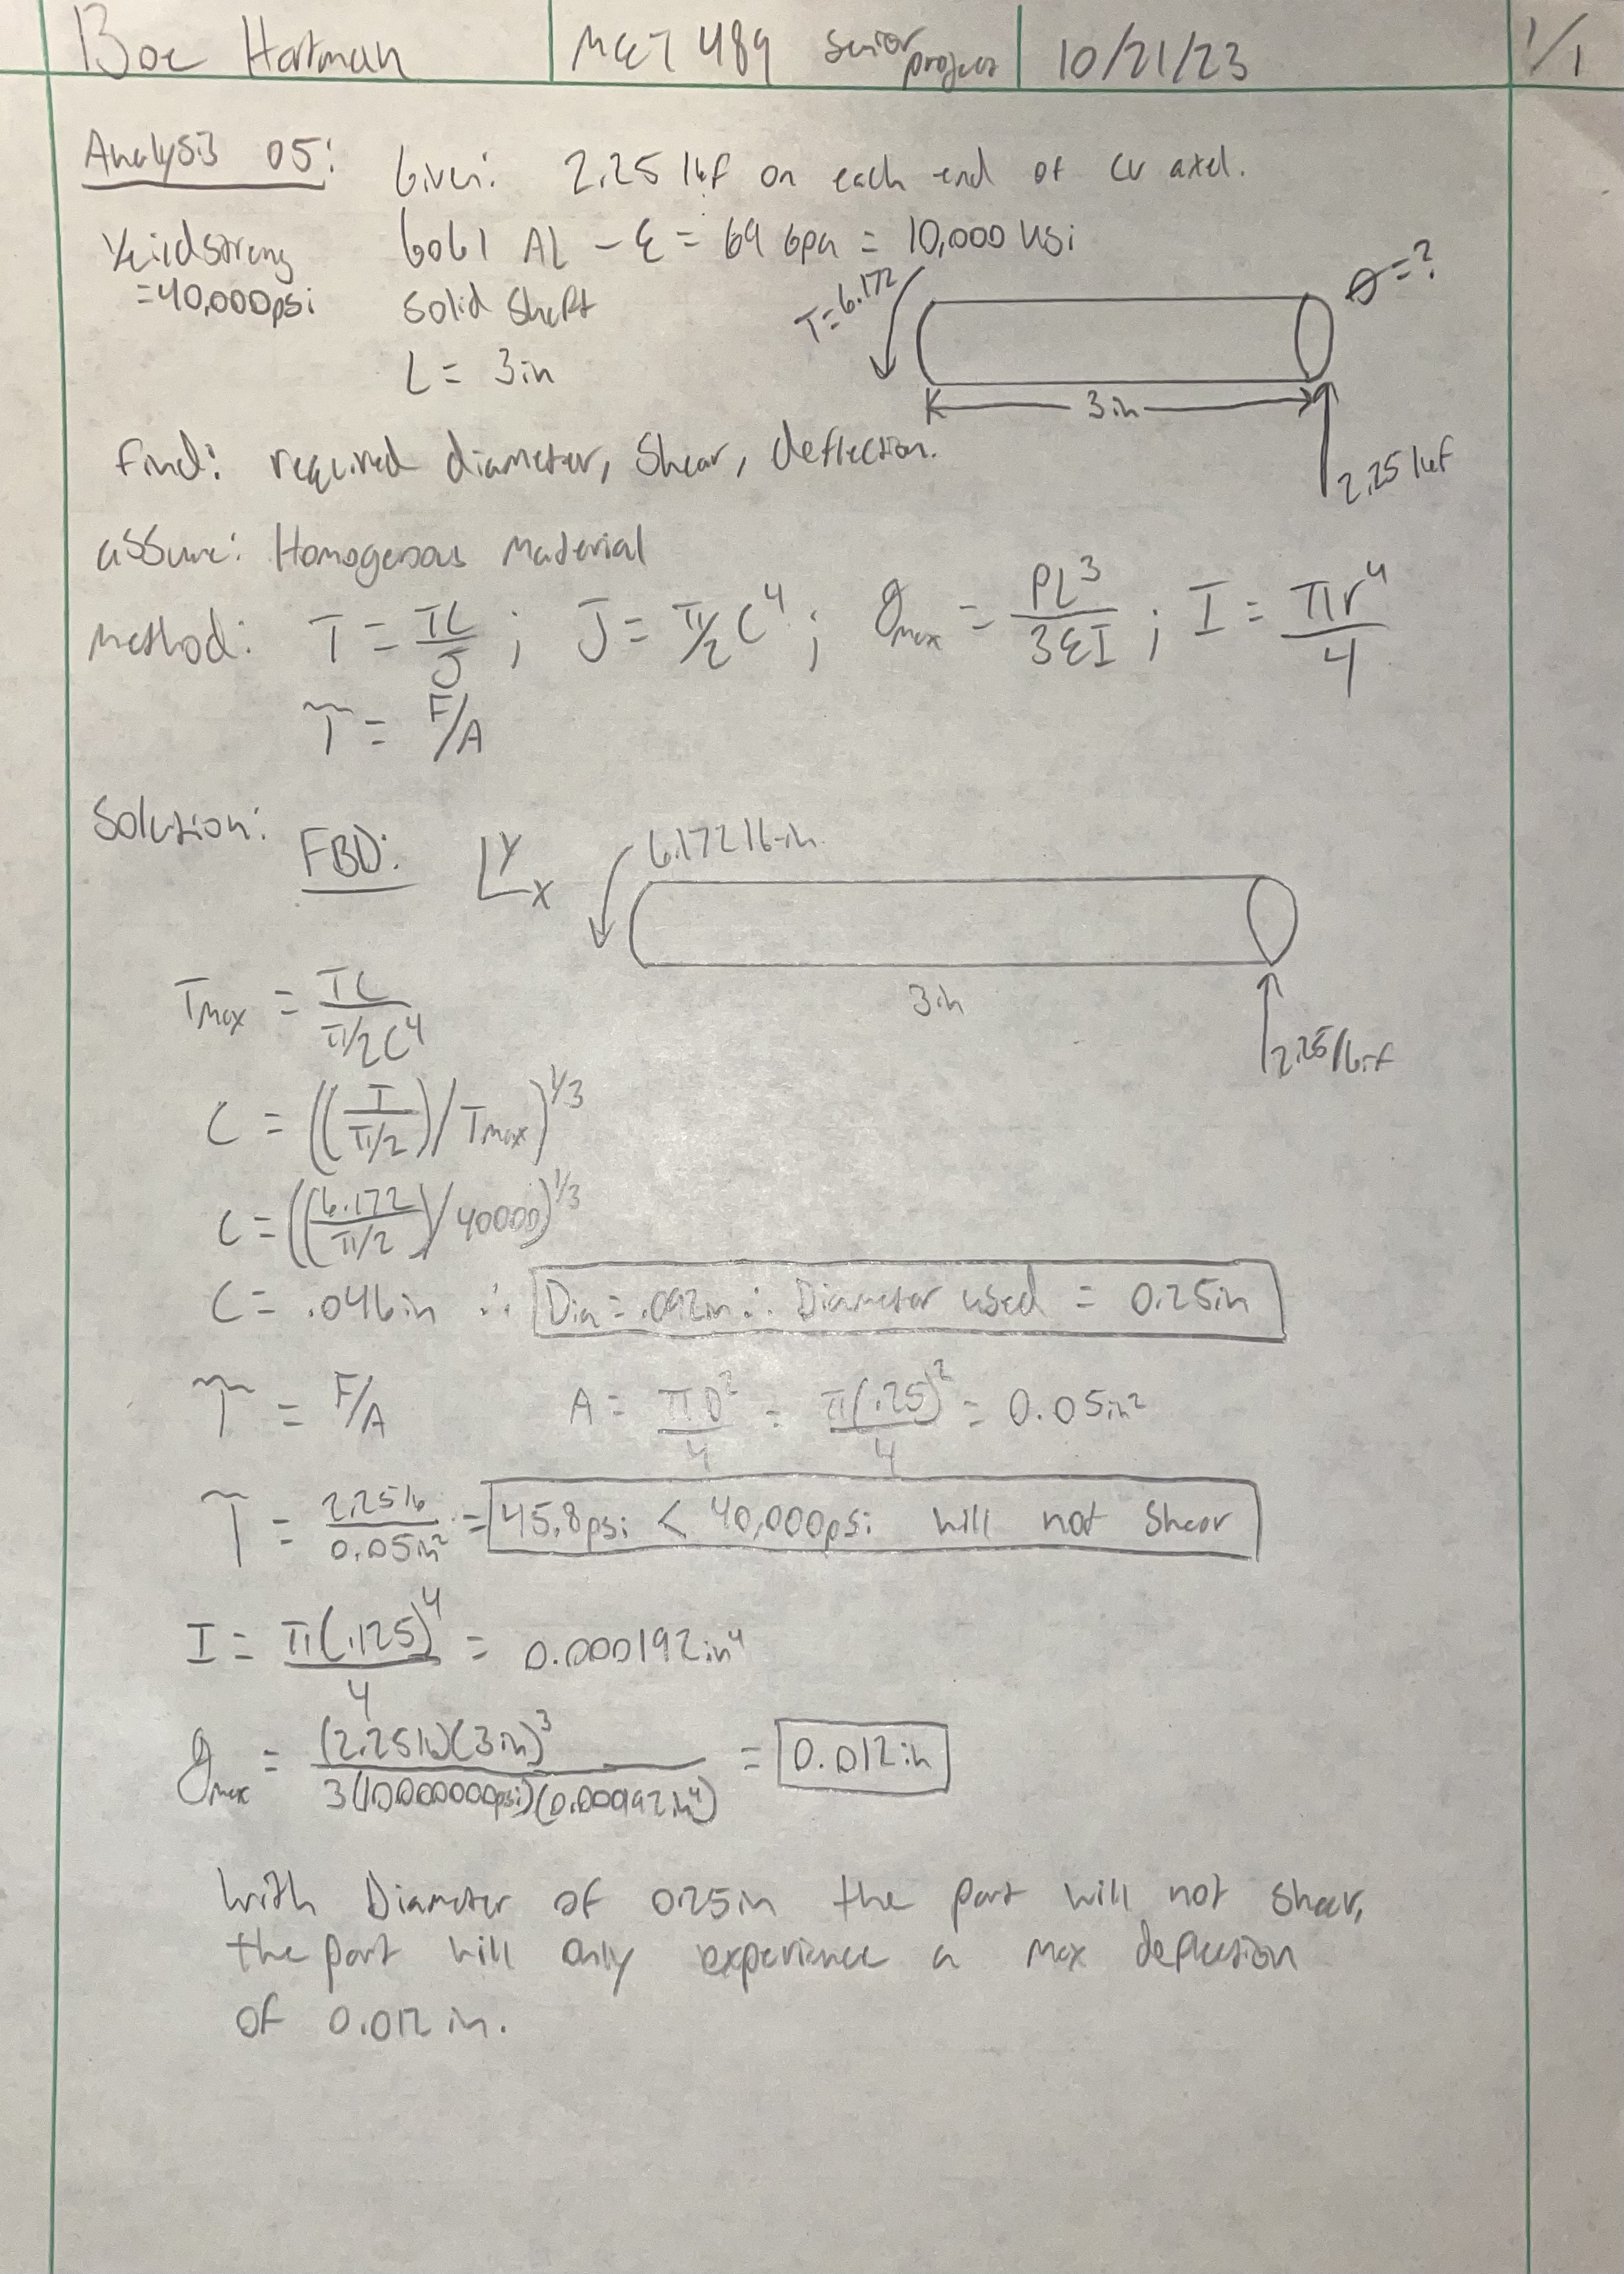 Boe Hartman MET 489 Senior project 10/21/23 1/1
Analysis 05: Given: 2.25 lbf on each end of CV axel.
Yeildstreng =40,000psi
6061 AL - ε = 69 Gpa = 10,000 Ksi
Solid Shaft
L = 3in
T=6.172
Ø=?
3in
2.25 lbf
Find: required diameter, Shear, deflection.
assume: Homogenous Material
Method: T = TC/J ; J = π/2 C⁴ ; ymax = PL³/3εI ; I = πr⁴/4
τ = F/A
Solution:
FBD: Y X
6.172 lb-in
3in
2.25 lbf
Tmax = TC/π/2C⁴
C = ((T/π/2)/Tmax)^1/3
C = ((6.172/π/2)/40000)^1/3
C = .046in ∴ Dia = .092in ∴ Diameter used = 0.25in
τ = F/A A = πD²/4 = π(.25)²/4 = 0.05in²
τ = 2.25lb/0.05in² = 45.8psi < 40,000psi will not Shear
I = π(.125)⁴/4 = 0.000192in⁴
ymax = (2.25lb)(3in)³/3(10000000psi)(0.000192in⁴) = 0.012in
With Diameter of 0.25in the part will not shear,
the part will only experience a max deflection
of 0.012 in.